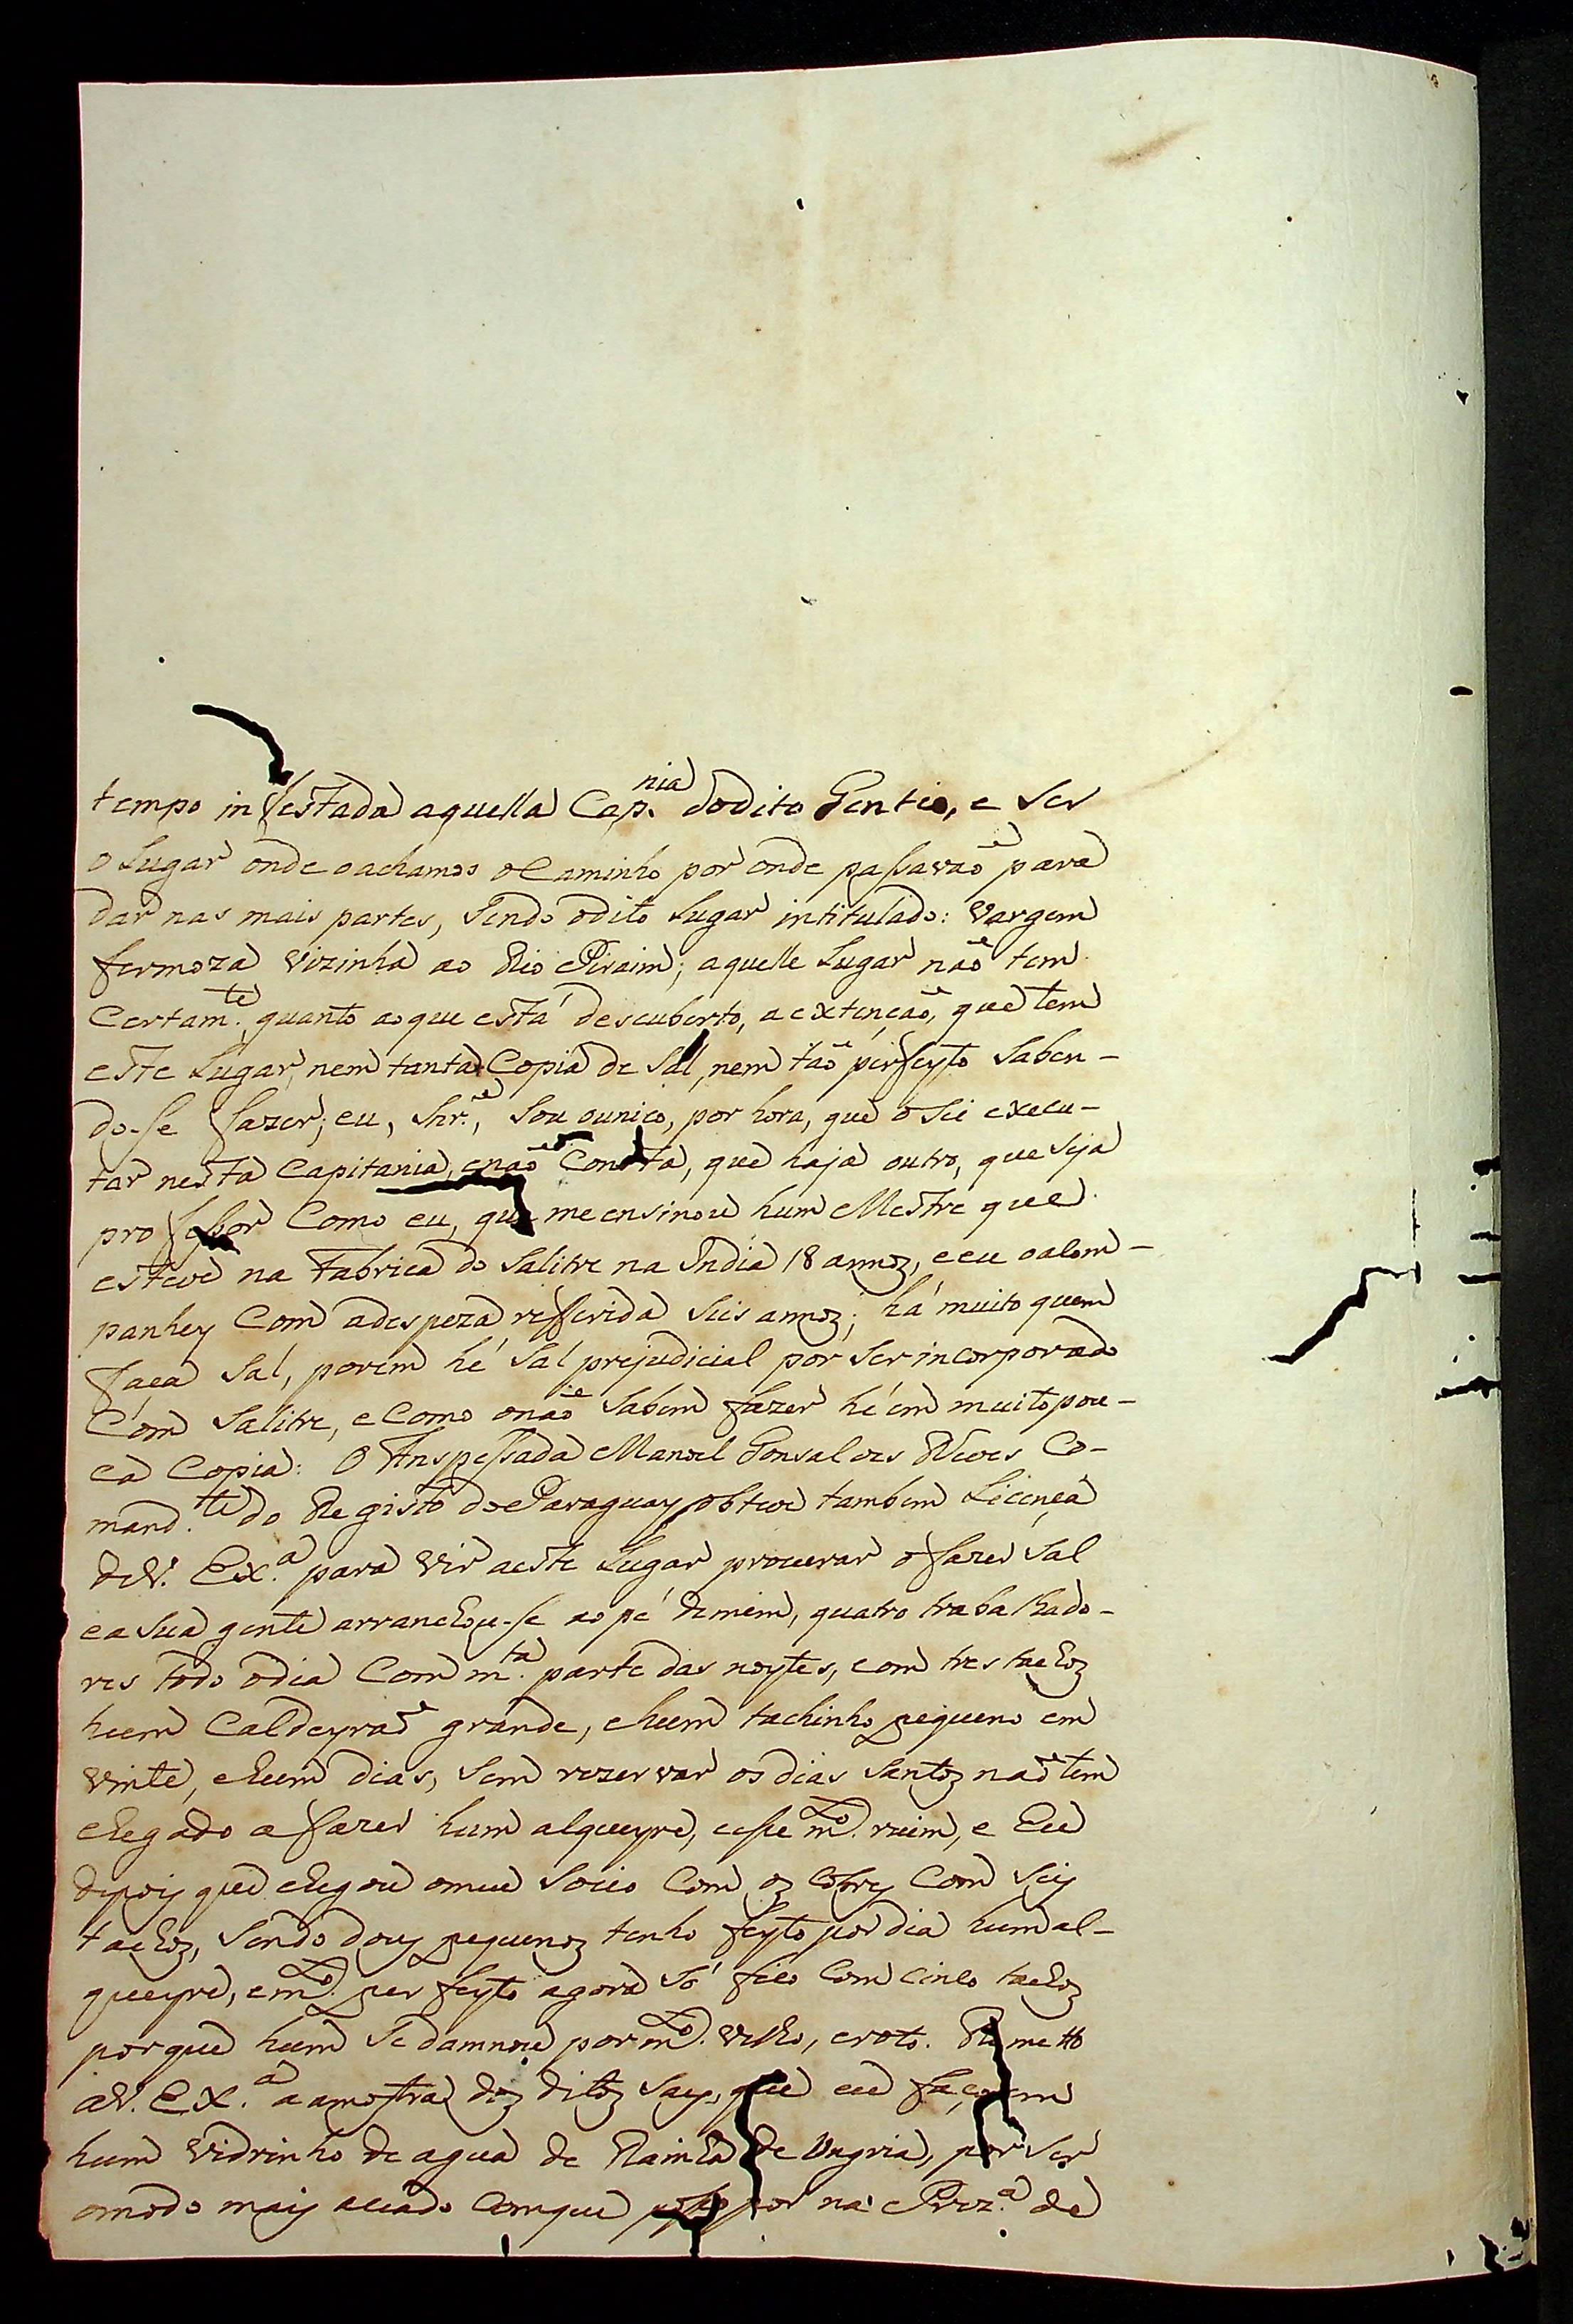 tempo infestada aquella Cap.nia do dito Gentio, e ser
o Lugar onde o achamos o Caminho por onde passavaõ para
dar nas mais partes, sendo o dito Lugar intitulado: Vargem
fermoza vizinha ao Rio Piraim; aquelle Lugar naõ tem
Certam.te quanto ao que está descuberto, a extençaõ, que tem
este Lugar, nem tanta Copia de Sal, nem taõ perfeyto Saben-
do-se fazer; eu, Snr.e, Sou o unico, por hora, que o Sei execu-
tar nesta Capitania, e naõ Consta, que haja outro, que Seja
professor Como eu, que me ensinou hum Mestre que
esteve na Fabrica do Salitre na India 18 annos, e eu o acom-
panhey Com a despeza refferida Seis annos; há muito quem
faça Sal, porem hé Sal prejudicial por Ser incorporado
Com Salitre, e Como o naõ Sabem fazer hé em muito pou-
ca Copia: O Anspessada Manoel Gonsalves Neves Co-
mand.te do Registo do Paraguay obteve tambem Licença
de V. Ex.a para vir a este Lugar procurar o fazer Sal
e a Sua gente arranchou-se ao pé de mim, quatro trabalhado-
res todo o dia Com m.ta parte das noytes, com tres tachos
hum Caldeyraõ grande, e hum tachinho pequeno em
vinte, e hum dias, Sem rezervar os dias Santos naõ tem
chegado a fazer hum alqueyre, e esse m.to ruim, e Eu
depois que chegou o meu Socio Com os Cobres Com Seis
tachos, Sendo dous pequenos tenho feyto por dia hum al-
queyre, e m.to perfeyto agora Só fico Com Cinco tachos
porque hum Se damnou por m.to velho, e roto. Remetto
a V. Ex.a a amostra dos ditos Saes, que eu faço, em
hum Vidrinho de agua de Rainha de Ungria, por Ser
o modo mais aceado Com que posso por na Prez.a de